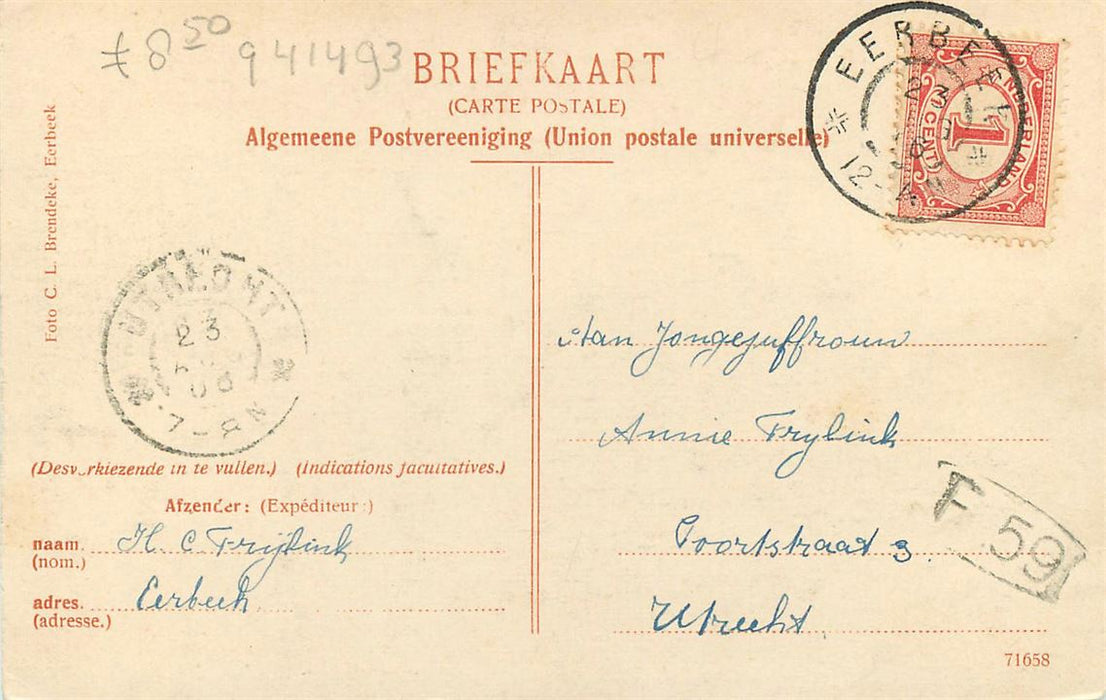 ƒ 8 50 941493
BRIEFKAART
(CARTE POSTALE)
Algemeene Postvereeniging (Union postale universelle)
EERBEEK
23
12-4N
NEDERLAND
1
CENT
Foto C. L. Brendeke, Eerbeek
UTRECHT
23
08
7-8N
Aan Jongejuffrouw
Annie Frylink
Poortstraat 3.
Utrecht
F 59
(Desverkiezende in te vullen.) (Indications facultatives.)
Afzender: (Expéditeur:)
naam. H. C. Frijlink
(nom.)
adres. Eerbeek
(adresse.)
71658